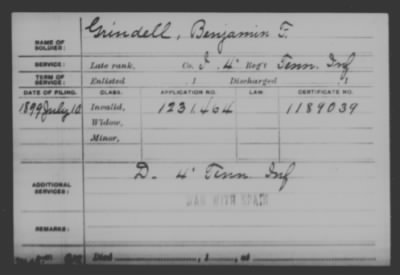 Grindell, Benjamin F.
NAME OF SOLDIER:
SERVICE: Late rank, Co. I, 4" Reg't Tenn. Inf
TERM OF SERVICE: Enlisted , 1 Discharged , 1
DATE OF FILING. CLASS. APPLICATION NO. LAW. CERTIFICATE NO.
1899 July 10 Invalid, 1231.464 1189039
Widow,
Minor,
ADDITIONAL SERVICES: D- 4" Tenn Inf
WAR WITH SPAIN
REMARKS:
Died , 1 , at